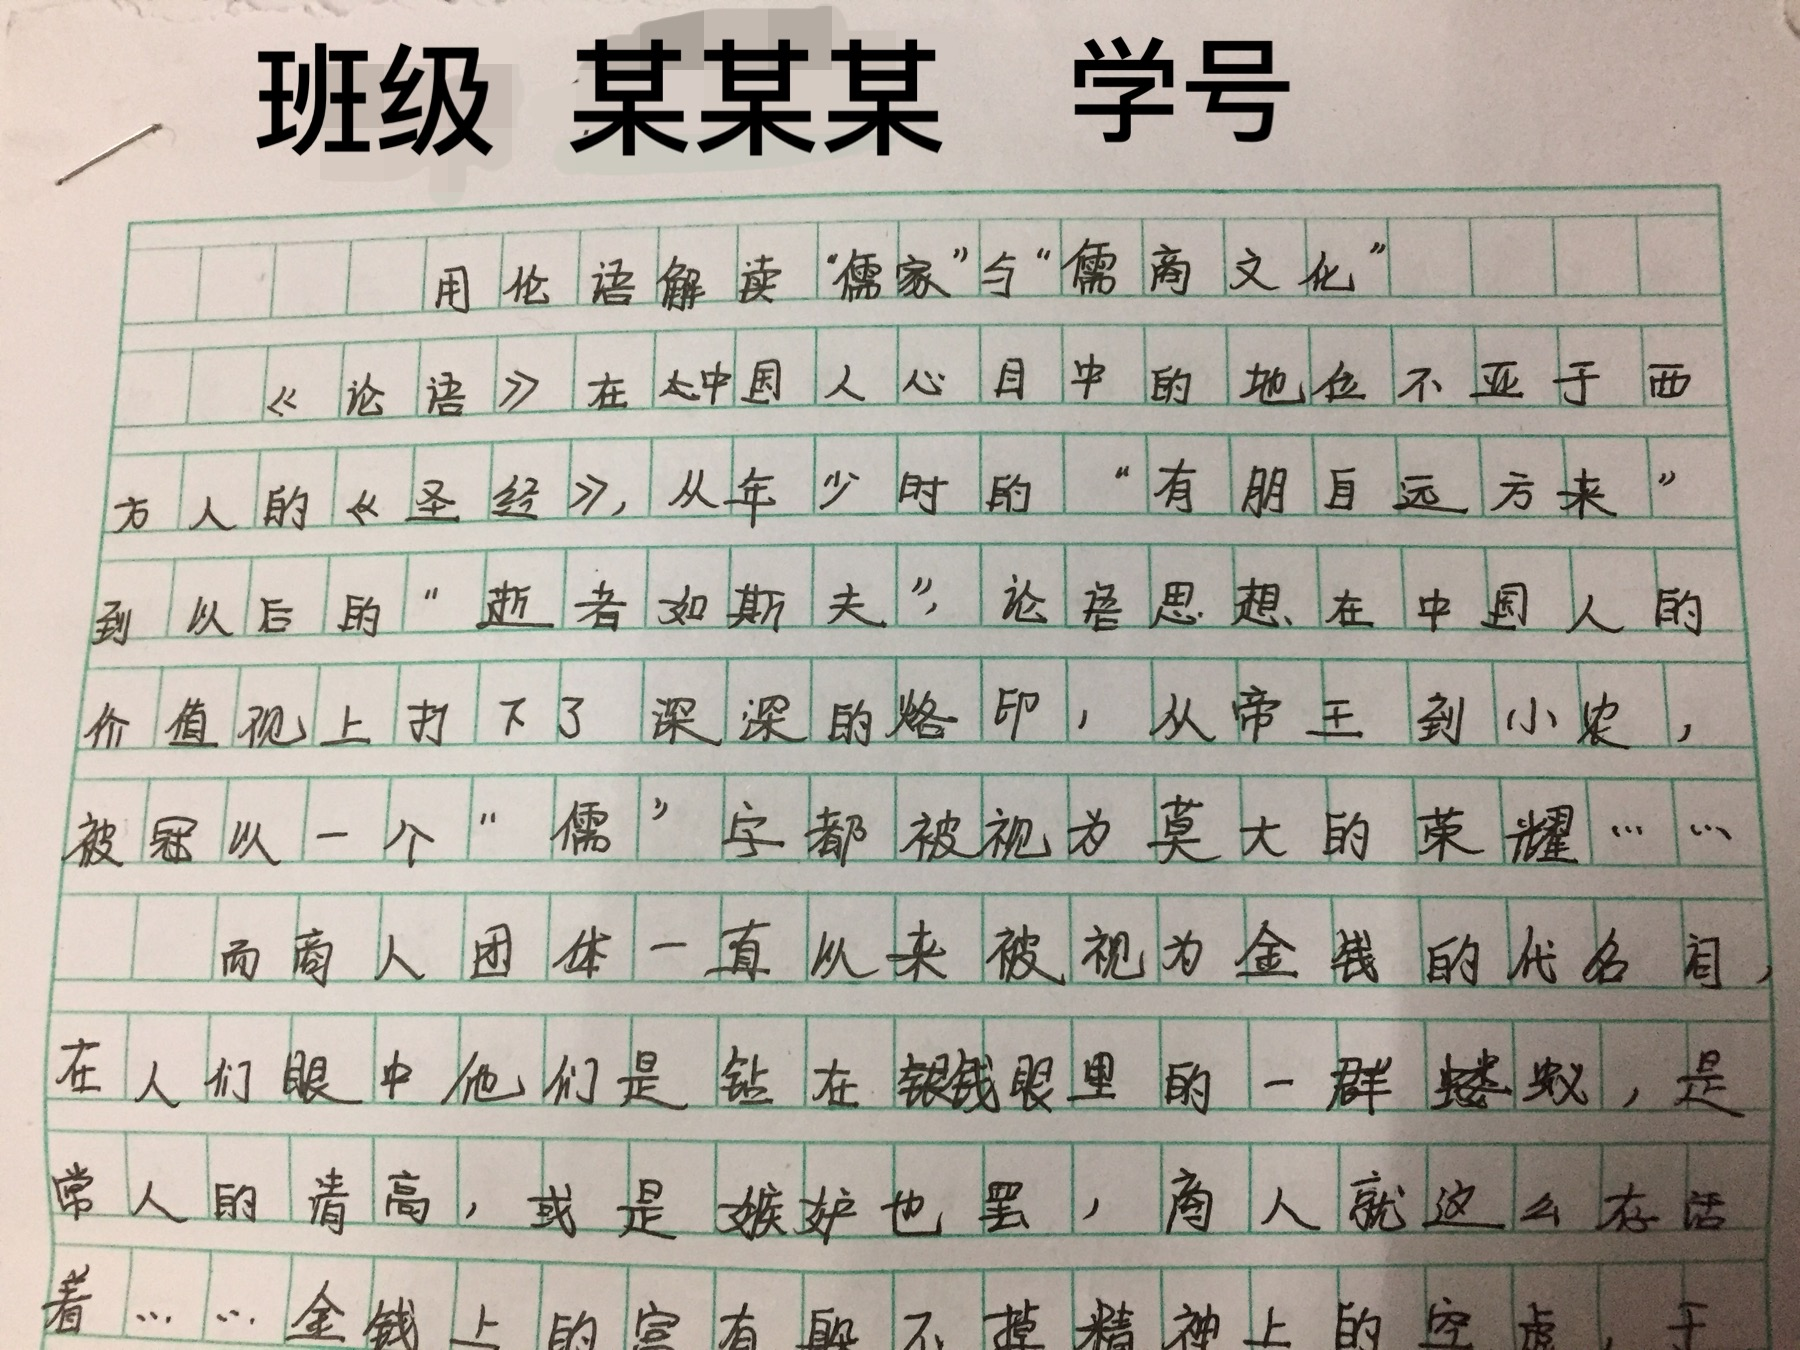 班级 某某某 学号
用伦语解读“儒家”与“儒商文化”
《论语》在中国人心目中的地位不亚于西
方人的《圣经》，从年少时的“有朋自远方来”
到以后的“逝者如斯夫”，论语思想在中国人的
价值观上打下了深深的烙印，从帝王到小农，
被冠以一个“儒”字都被视为莫大的荣耀……
而商人团体一直以来被视为金钱的代名词，
在人们眼中他们是钻在钱眼里的一群蝼蚁，是
常人的清高，或是嫉妒也罢，商人就这么存活
着……金钱上的富有躲不掉精神上的空虚，于